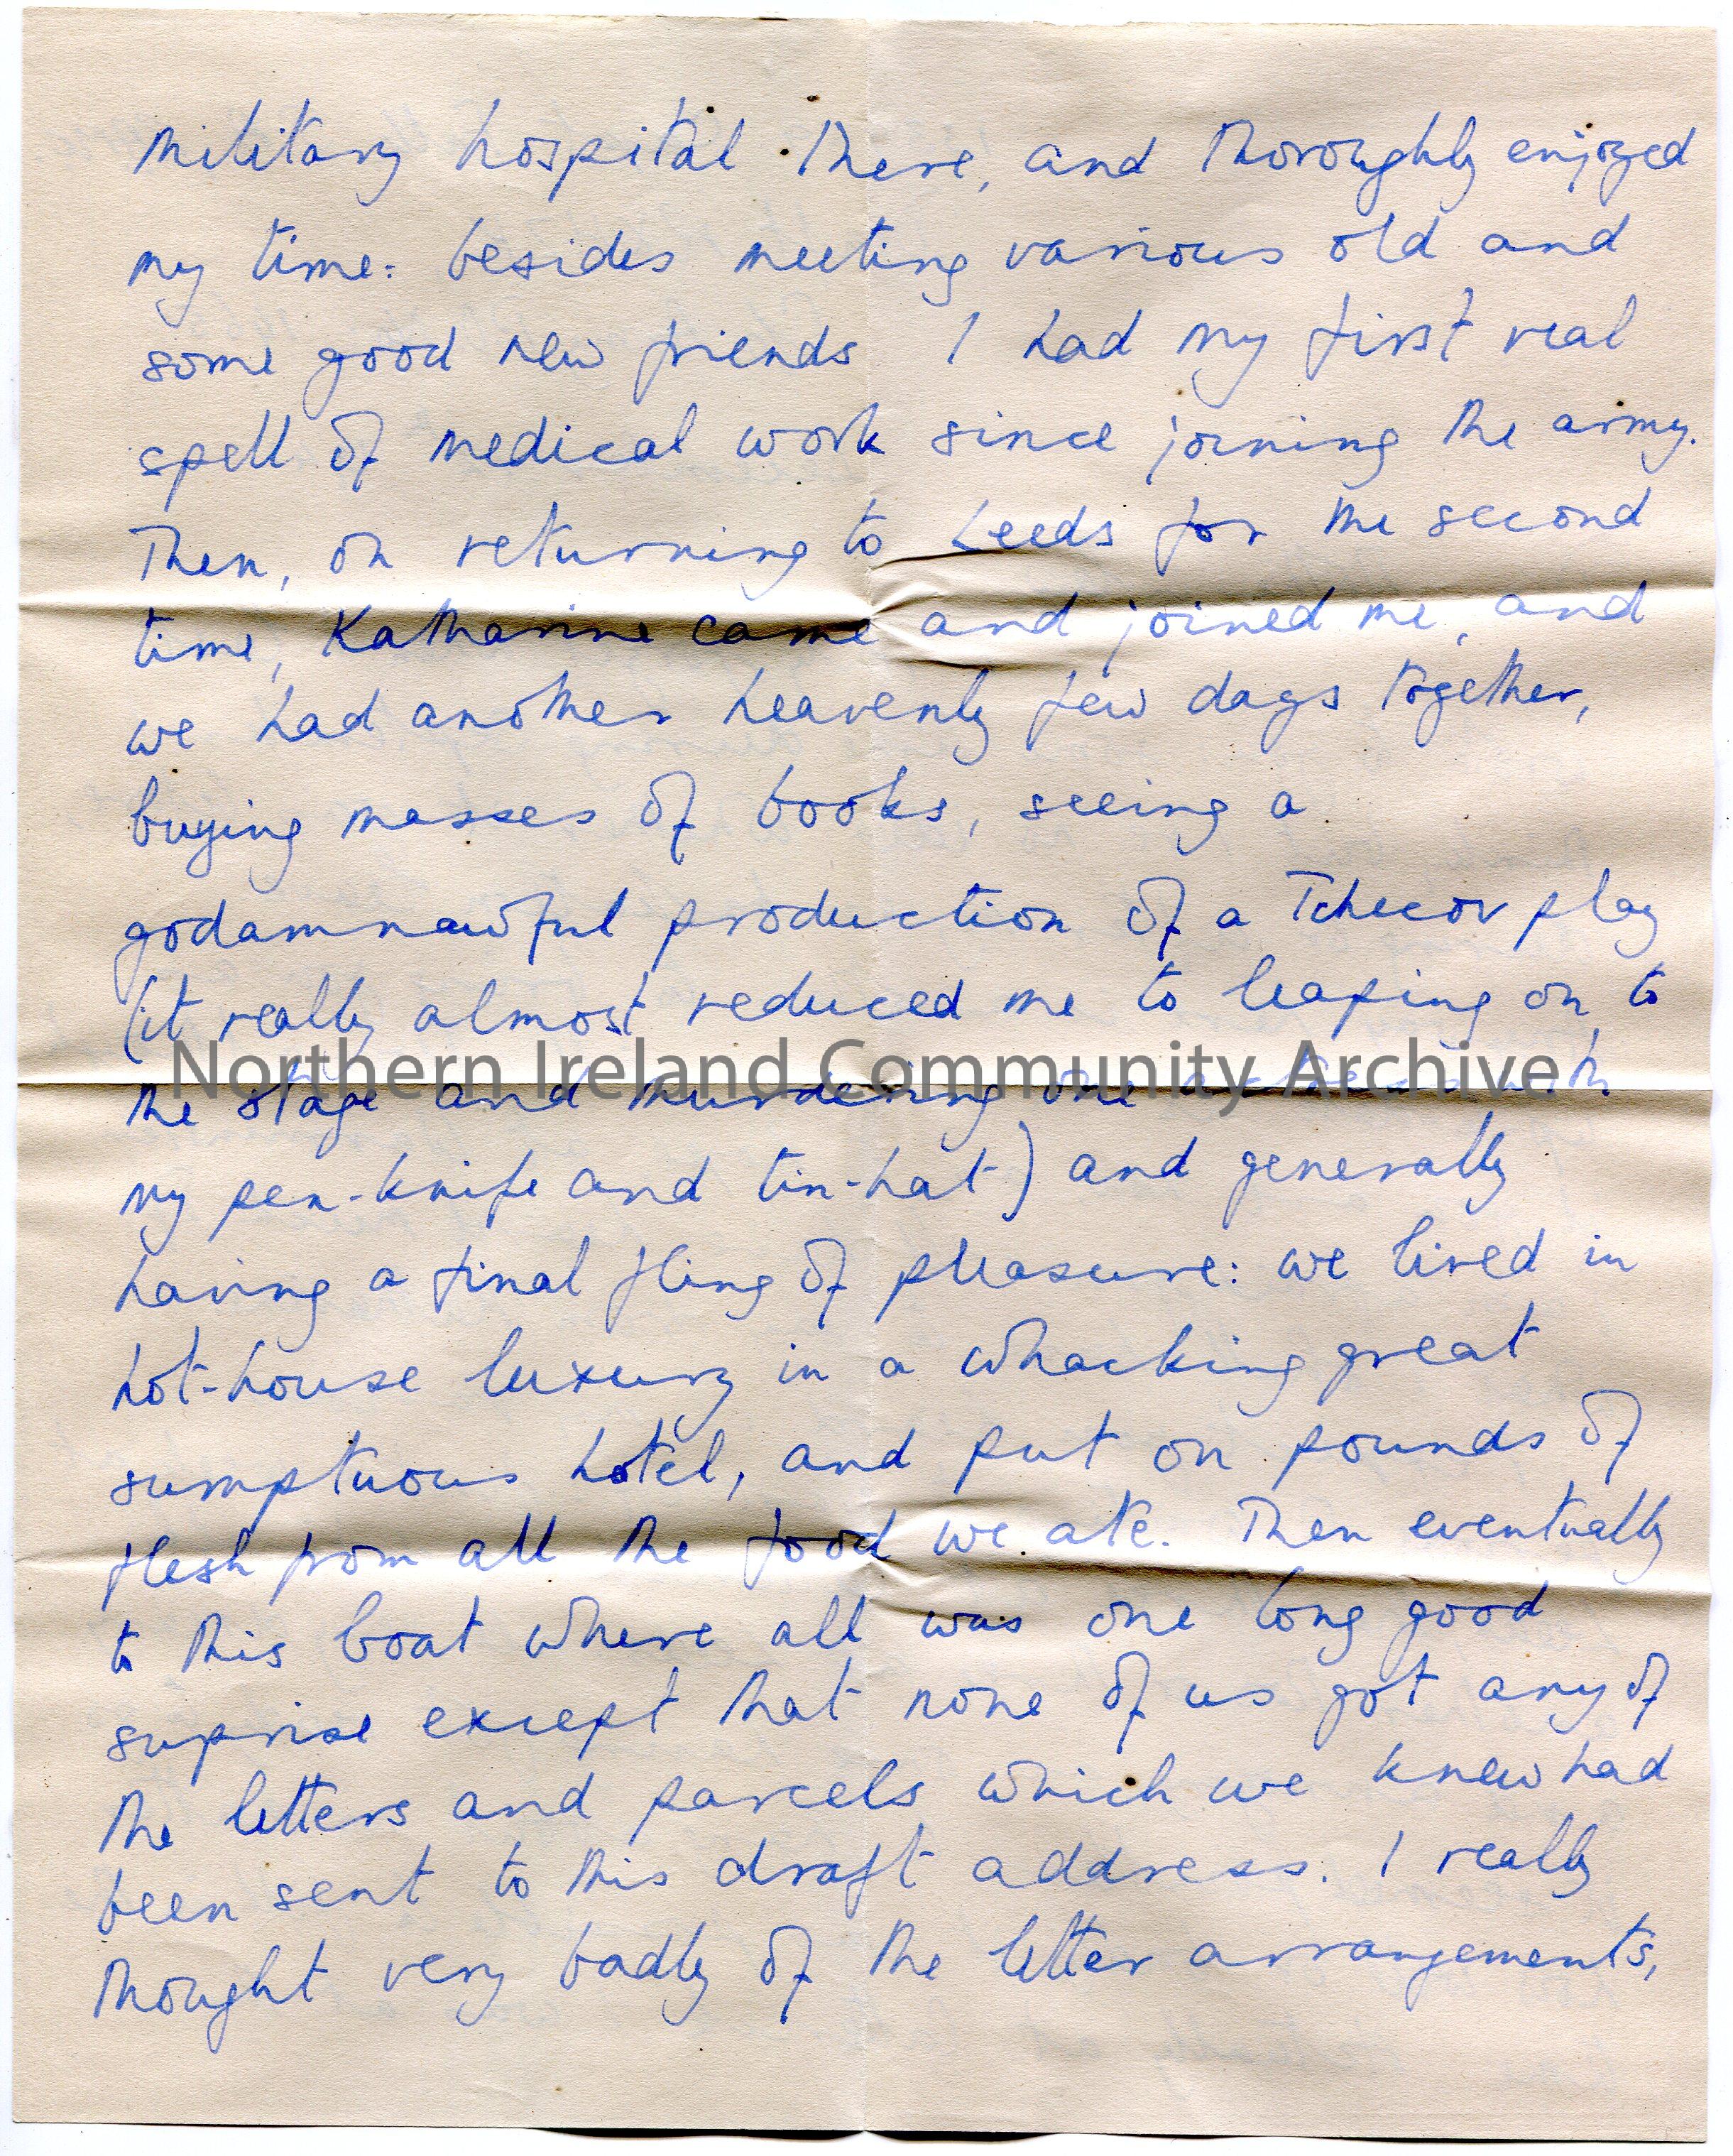 military hospital there, and thoroughly enjoyed
my time: besides meeting various old and
some good new friends I had my first real
spell of medical work since joining the army.
Then, on returning to Leeds for the second
time, Katharine came and joined me, and
we had another heavenly few days together,
buying masses of books, seeing a
godamnawful production of a Tchecov play
(it really almost reduced me to leaping on to
Northern Ireland Community Archive
the stage and murdering one actress with
my pen-knife and tin-hat) and generally
having a final fling of pleasure: we lived in
hot-house luxury in a whacking great
sumptuous hotel, and put on pounds of
flesh from all the food we ate. Then eventually
to this boat where all was one long good
suprise except that none of us got any of
the letters and parcels which we knew had
been sent to this draft address. I really
thought very badly of the letter arrangements,